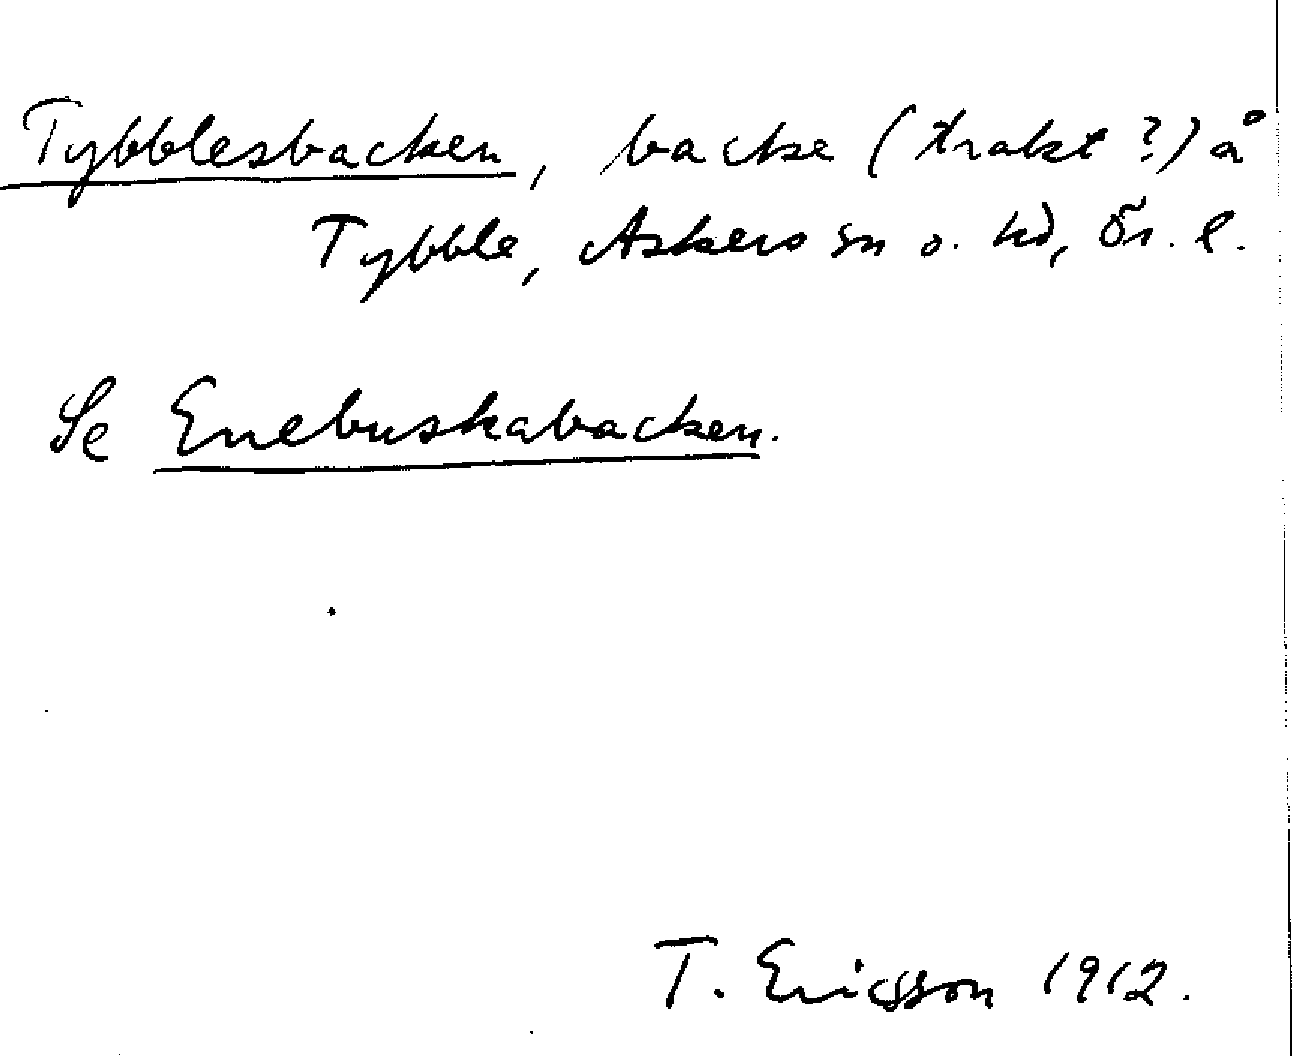 Tybblesbacken, backe (trakt?) å
Tybble, Askers sn o. hd, Ör. l.
Se Enebuskabacken.
T. Ericsson 1912.